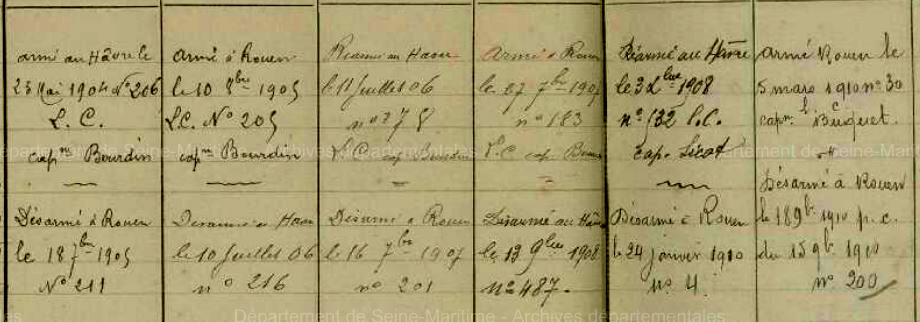 armé au Hâvre le
25 Mai 1904 N° 206
L. C.
cap.ne Bourdin
Désarmé à Rouen
le 18 7bre 1905
N° 211
Armé à Rouen
le 10 8bre 1905
L.C. N° 205
cap.ne Bourdin
Désarmé au Havre
le 10 Juillet 06
n° 216
Réarmé au Havre
le 11 Juillet 06
n° 278
L.C cap. Bourdin
Désarmé à Rouen
le 16 7bre 1907
n° 201
Armé à Rouen
le 27 7bre 1907
n° 183
L.C cap.
Désarmé au Hâvre
le 13 9bre 1908
n° 487.
Réarmé au Hâvre
le 3 Xbre 1908
n° 132 L.C.
Cap. Licot
Désarmé à Rouen
le 24 janvier 1910
n° 4
Armé Rouen le
5 mars 1910 n° 30
L C
capne Buquet.
Désarmé à Rouen
le 18 9b 1910 p.c.
du 15 9b 1910
n° 200
Département de Seine-Maritime - Archives départementales